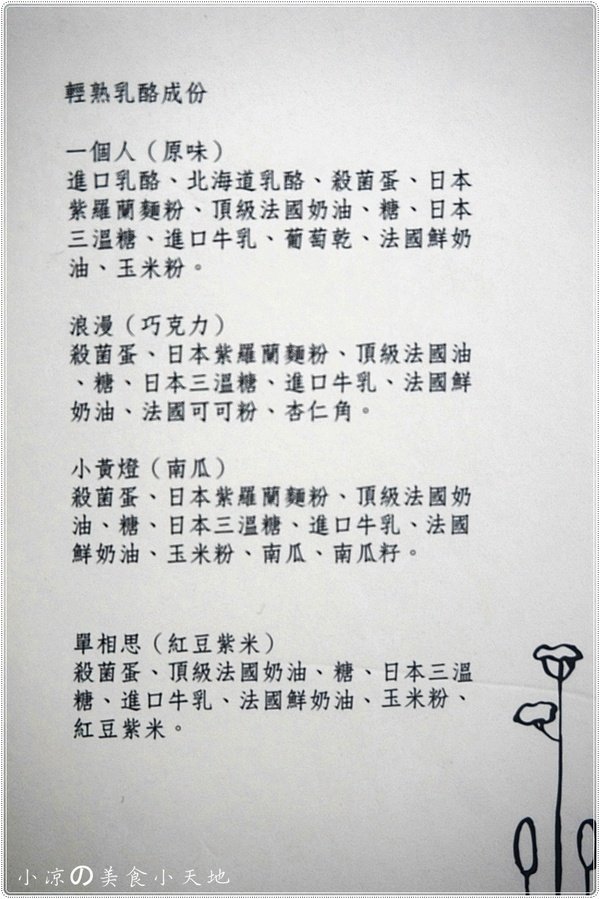 輕熟乳酪成份
一個人（原味）
進口乳酪、北海道乳酪、殺菌蛋、日本
紫羅蘭麵粉、頂級法國奶油、糖、日本
三溫糖、進口牛乳、葡萄乾、法國鮮奶
油、玉米粉。
浪漫（巧克力）
殺菌蛋、日本紫羅蘭麵粉、頂級法國油
、糖、日本三溫糖、進口牛乳、法國鮮
奶油、法國可可粉、杏仁角。
小黃燈（南瓜）
殺菌蛋、日本紫羅蘭麵粉、頂級法國奶
油、糖、日本三溫糖、進口牛乳、法國
鮮奶油、玉米粉、南瓜、南瓜籽。
單相思（紅豆紫米）
殺菌蛋、頂級法國奶油、糖、日本三溫
糖、進口牛乳、法國鮮奶油、玉米粉、
紅豆紫米。
小凉の美食小天地